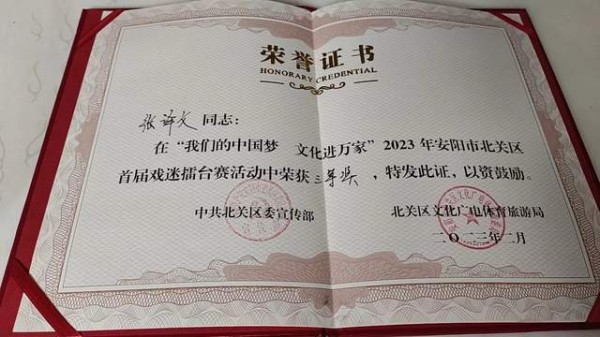 荣誉证书
HONORARY CREDENTIAL
张译文 同志：
在“我们的中国梦 文化进万家”2023年安阳市北关区
首届戏迷擂台赛活动中荣获三等奖，特发此证，以资鼓励。
中共北关区委宣传部 北关区文化广电体育旅游局
二〇二三年二月